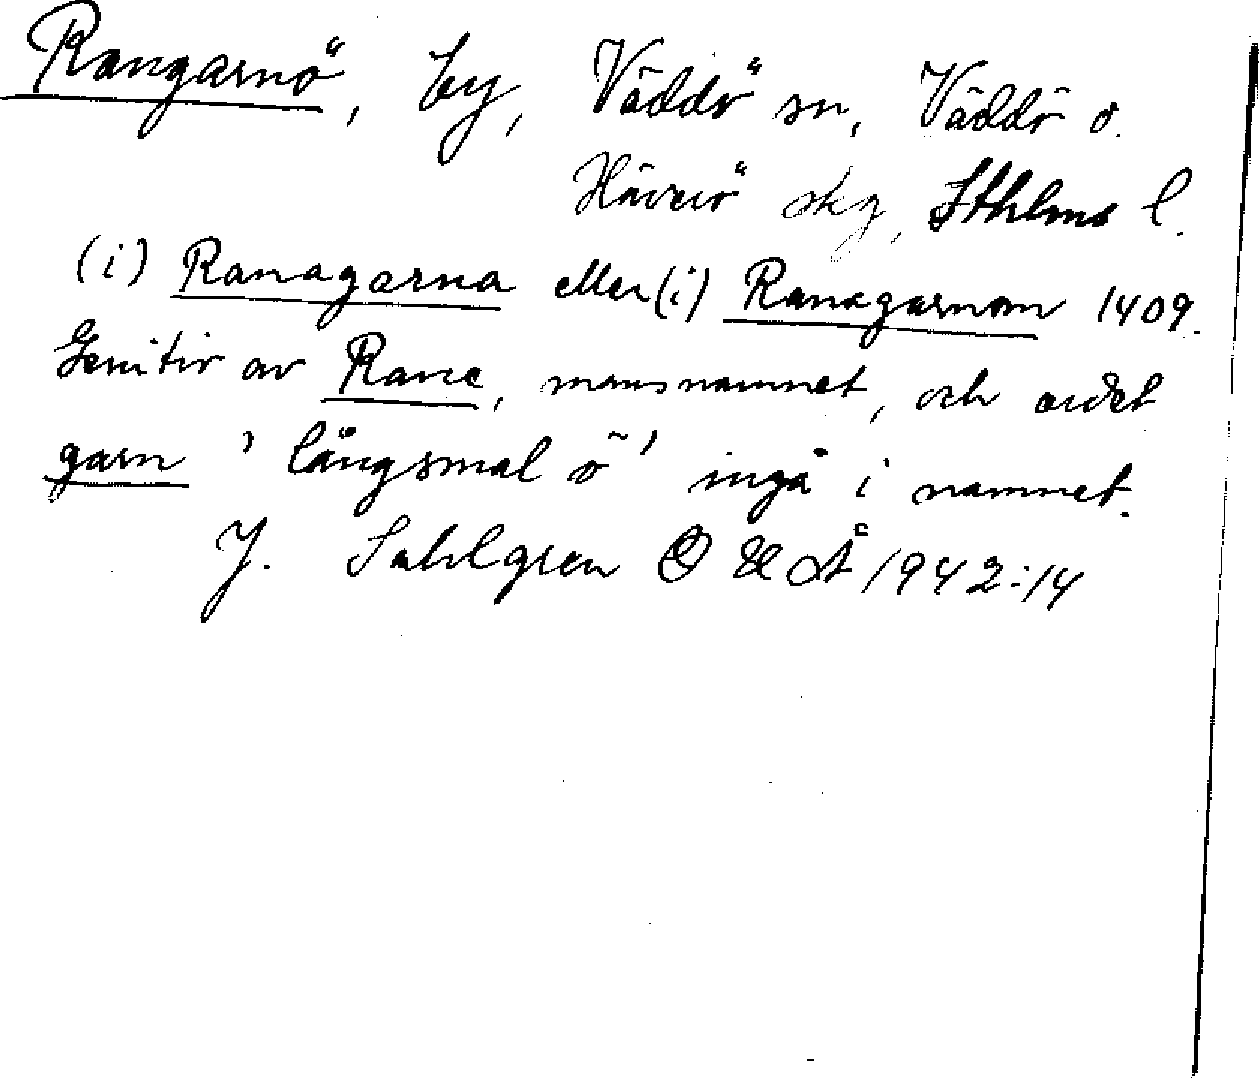 Rangarnö, by, Väddö sn, Väddö o.
Häverö skg, Sthlms l.
(i) Ranagarna eller (i) Ranagarnom 1409.
Genitiv av Rane, mansnamnet, och ordet
garn 'långsmal ö' ingå i namnet.
J. Sahlgren O U o Å 1942:14